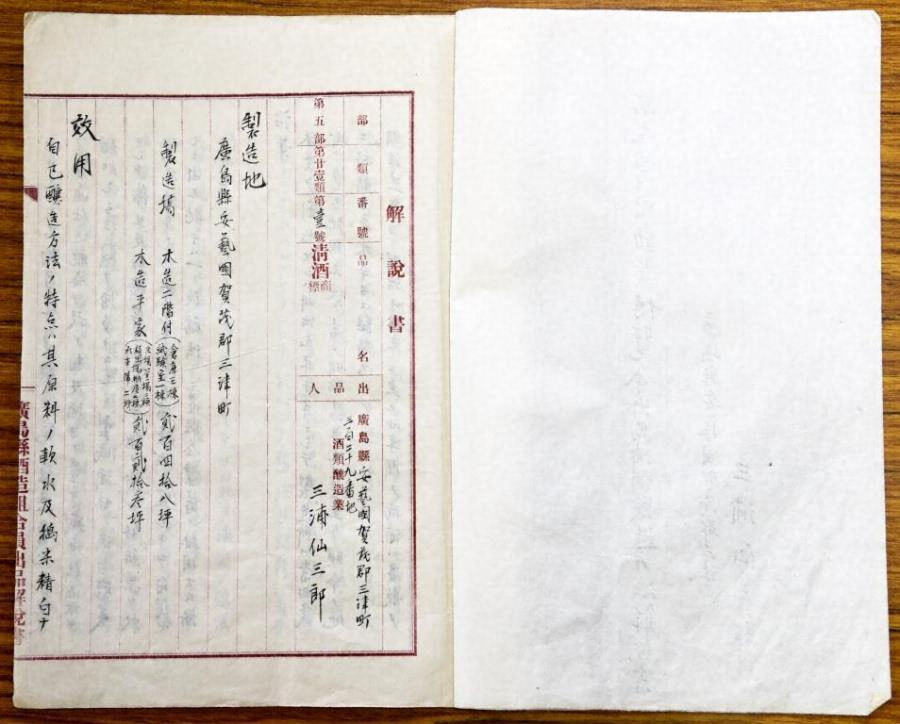 解說書
部類番號品名出品人
第五部第廿壹類第壹號清酒商標
廣島縣安藝國賀茂郡三津町
二百二十九番地
酒類釀造業
三浦仙三郎
製造地
廣島縣安藝國賀茂郡三津町
製造塲 木造二階付(倉庫三棟試驗室一棟)貳百四拾八坪
木造平家 貳百貳拾參坪
效用
自己釀造方法ノ特点ハ其原料ノ軟水及糯米精白ナ
廣島縣酒造組合員出品解說書